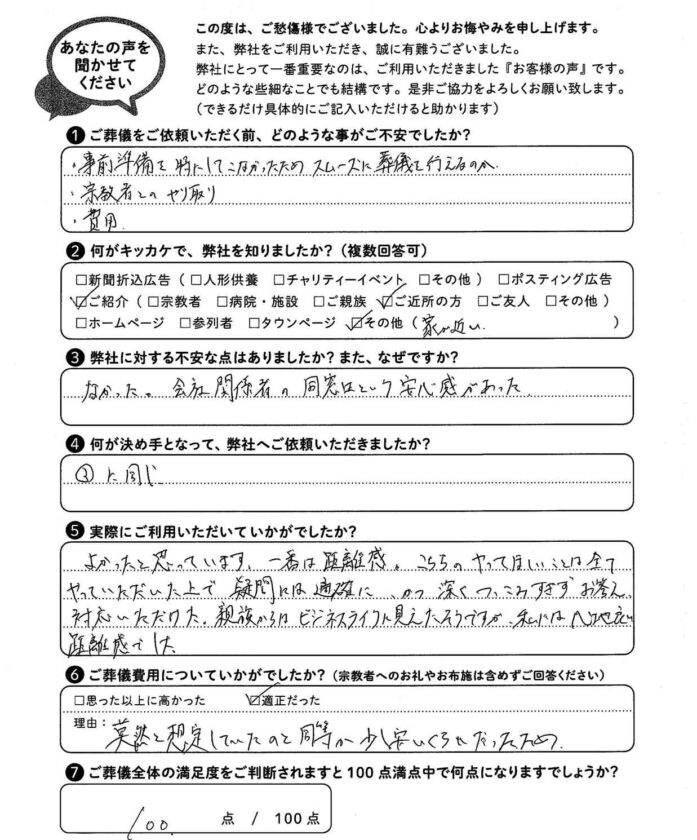 あなたの声を
聞かせて
ください
この度は、ご愁傷様でございました。心よりお悔やみを申し上げます。
また、弊社をご利用いただき、誠に有難うございました。
弊社にとって一番重要なのは、ご利用いただきました『お客様の声』です。
どのような些細なことでも結構です。是非ご協力をよろしくお願い致します。
(できるだけ具体的にご記入いただけると助かります)
❶ご葬儀をご依頼いただく前、どのような事がご不安でしたか?
・事前準備を特にしてこなかったため スムーズに葬儀を行えるのか
・宗教者とのやり取り
・費用
❷何がキッカケで、弊社を知りましたか?(複数回答可)
□新聞折込広告(□人形供養 □チャリティーイベント □その他)□ポスティング広告
☑ご紹介(□宗教者 □病院・施設 □ご親族 ☑ご近所の方 □ご友人 □その他)
□ホームページ □参列者 □タウンページ ☑その他(家が近い )
❸弊社に対する不安な点はありましたか?また、なぜですか?
なかった。会社関係者の同窓という安心感があった
❹何が決め手となって、弊社へご依頼いただきましたか?
③に同じ
❺実際にご利用いただいていかがでしたか?
よかったと思っています。一番は距離感。こちらのやってほしいことは全て
やっていただいた上で 疑問には適確に、かつ深くつっこみすぎずお答え、
対応いただけた。親族からはビジネスライクに見えたそうですが、私には心地良い
距離感でした
❻ご葬儀費用についていかがでしたか?(宗教者へのお礼やお布施は含めずご回答ください)
□思った以上に高かった ☑適正だった
理由:漠然と想定していたのと同等か少し安いくらいだったため
❼ご葬儀全体の満足度をご判断されますと100点満点中で何点になりますでしょうか?
100 点 / 100点